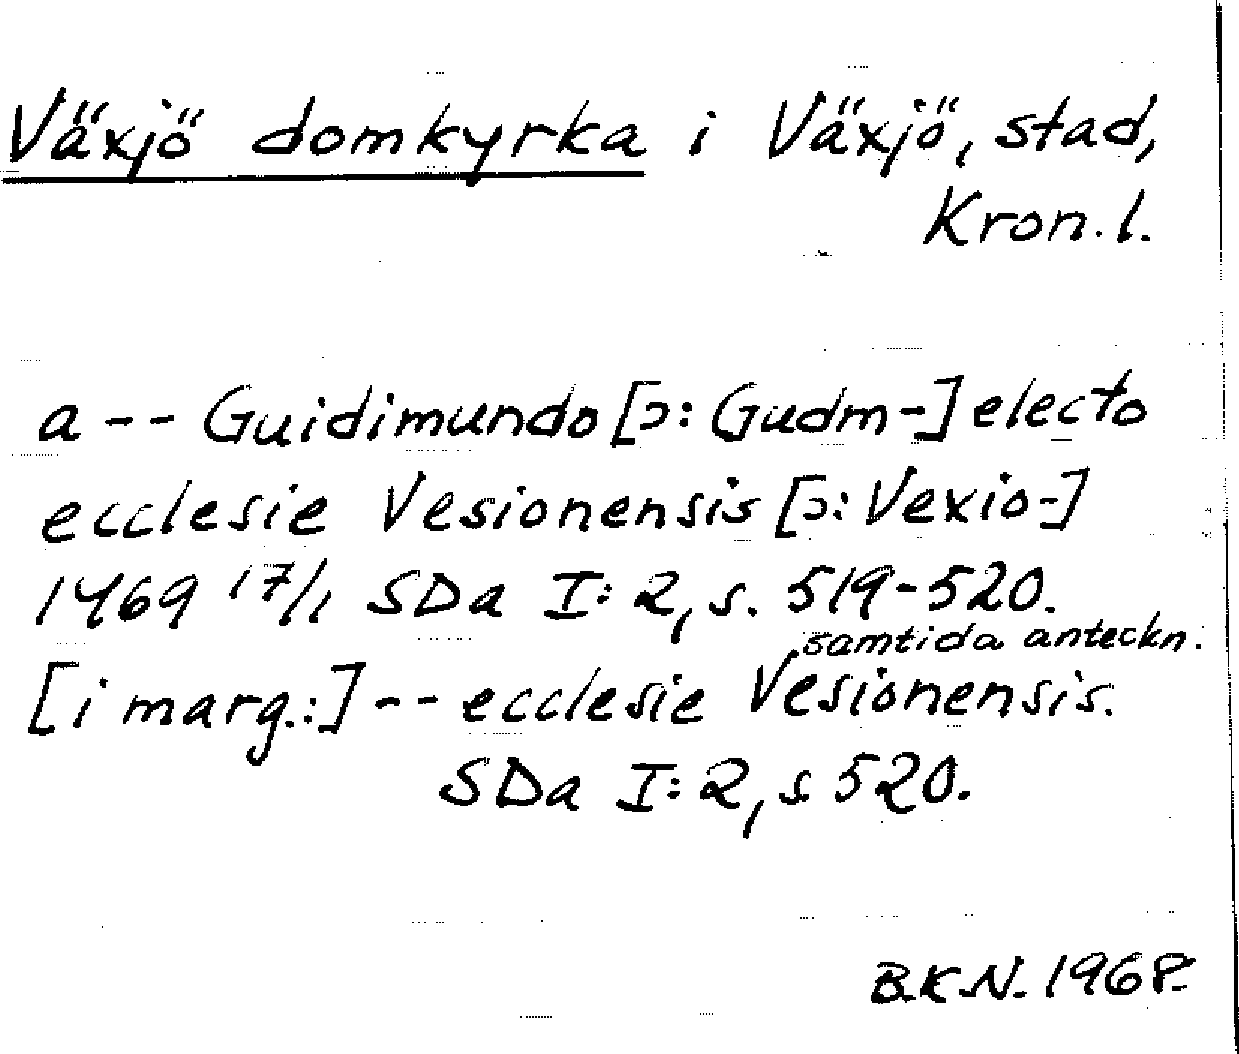 Växjö domkyrka i Växjö, stad,
Kron.l.
a -- Guidimundo [ɔ: Gudm-] electo
ecclesie Vesionensis [ɔ: Vexio-]
1469 17/1 SDa I:2, s. 519-520.
samtida anteckn.
[i marg.:] -- ecclesie Vesionensis.
SDa I:2, s 520.
B.K.N. 1968.